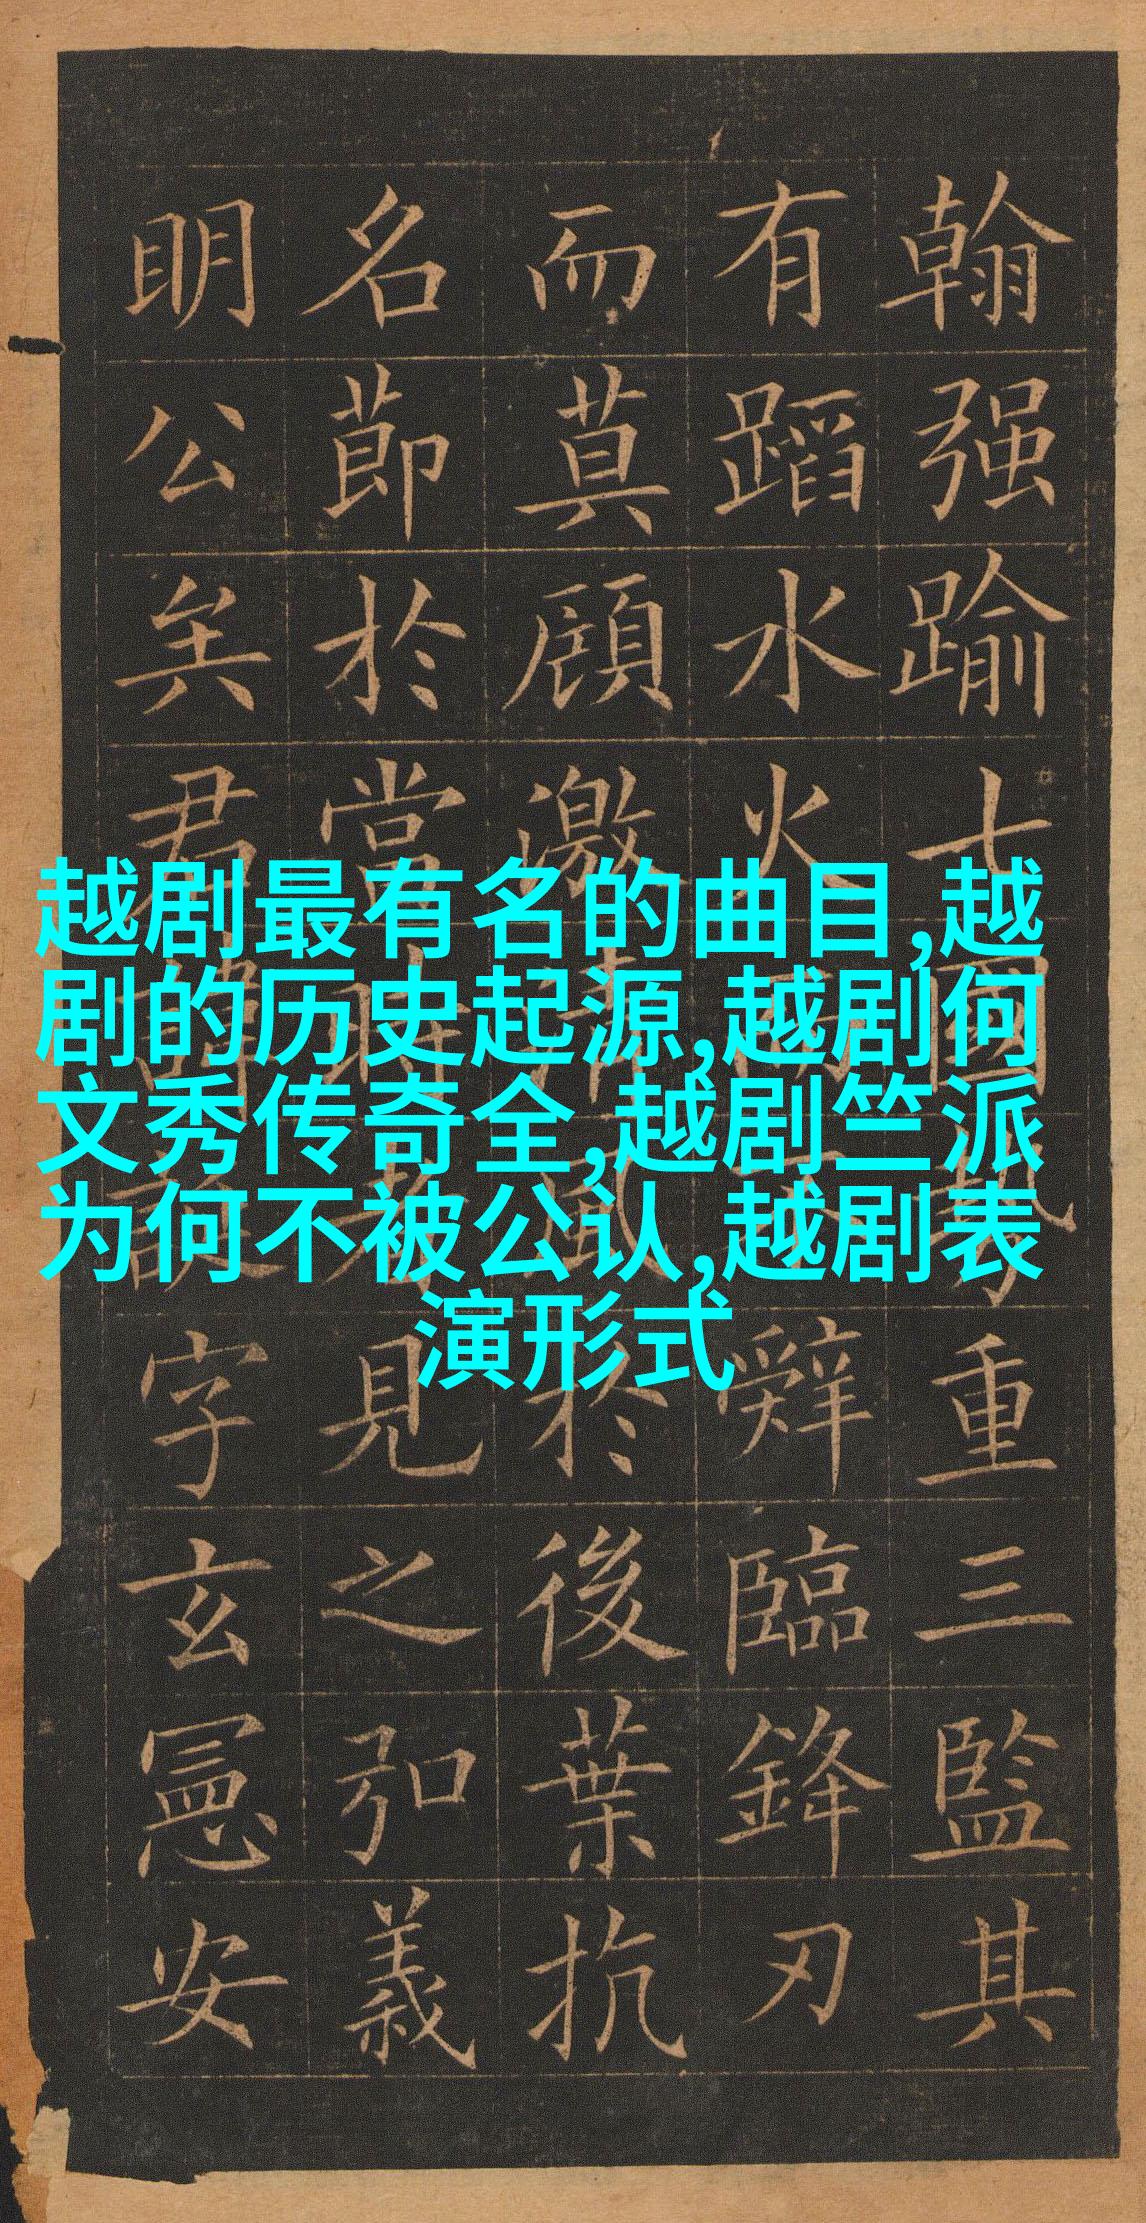 越剧最有名的曲目,越
剧的历史起源,越剧何
文秀传奇全,越剧竺派
为何不被公认,越剧表
演形式
翰强踰七國勢重三監其
有蹈水火而不辭臨鋒刃
而莫顧激清風於後葉抗
名節於當時者見之弘義
明公矣君諱誕字玄憲安